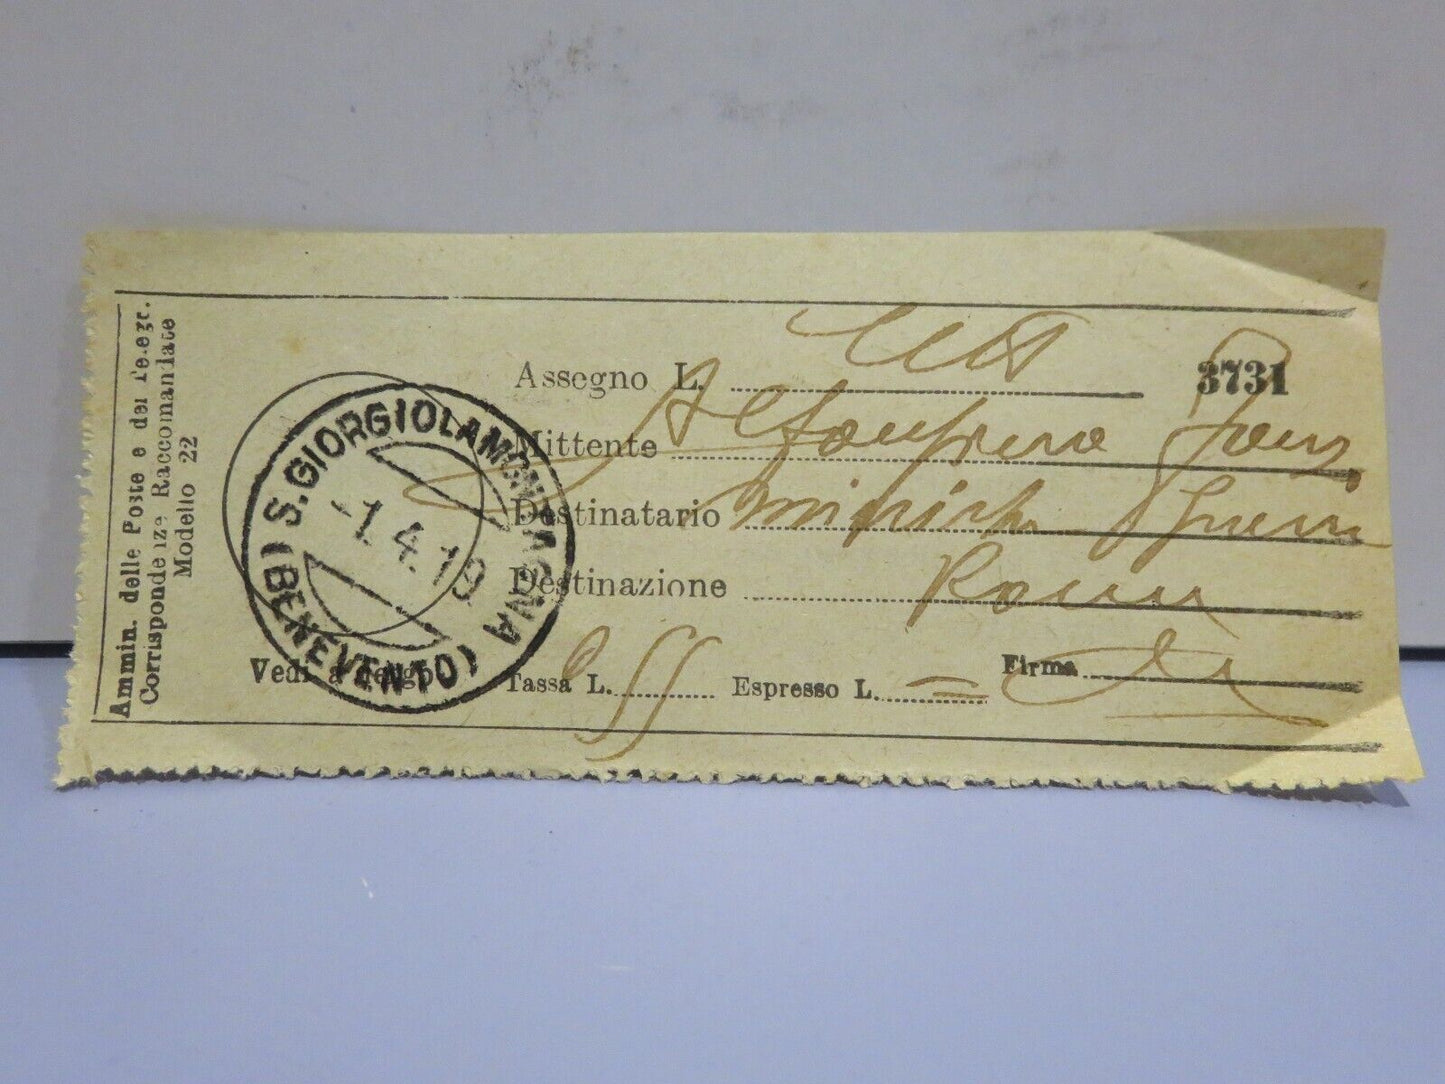 Ammin. delle Poste e dei Telegr.
Corrispondenze Raccomandate
Modello 22
S. GIORGIO LA MONTAGNA
(BENEVENTO)
-1.4.19
Assegno L.
3731
Mittente
Destinatario Ministero Guerra
Destinazione Roma
Vedi a tergo Tassa L. Espresso L. = Firma